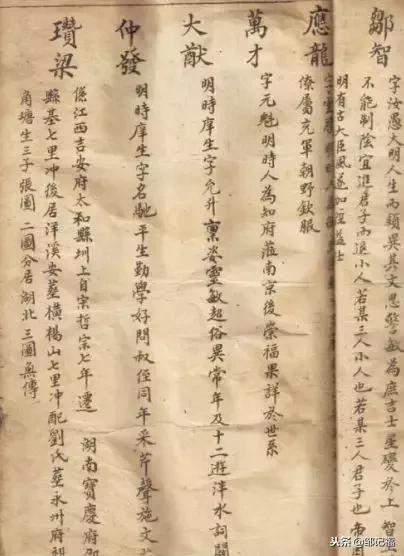 鄒智
字汝愚大明人生而穎異其文思警敏為庶吉士星變於上 智
不能制陰宜進君子而退小人若某三人小人也若某三人君子也 帝
明有古大臣風遂加
應龍
僚屬元軍朝野欽服
萬才
字元魁明時人為知府蒞南京後崇福果詳於世系
大猷
明時庠生字允升稟姿靈敏超俗異常年及十二遊泮水詞
仲發
明時庠生字名馳平生勤學好問叔侄同年采芹聲施文
瓚梁
係江西吉安府太和縣圳上自宗哲宗七年遷 湖南寶慶府邵
縣基七里冲後居洋溪安葬橫楊山七里冲配劉氏葬永州府
角塘生三子張圖 二圖分居湖北 三圖無傳
头条@邹记福